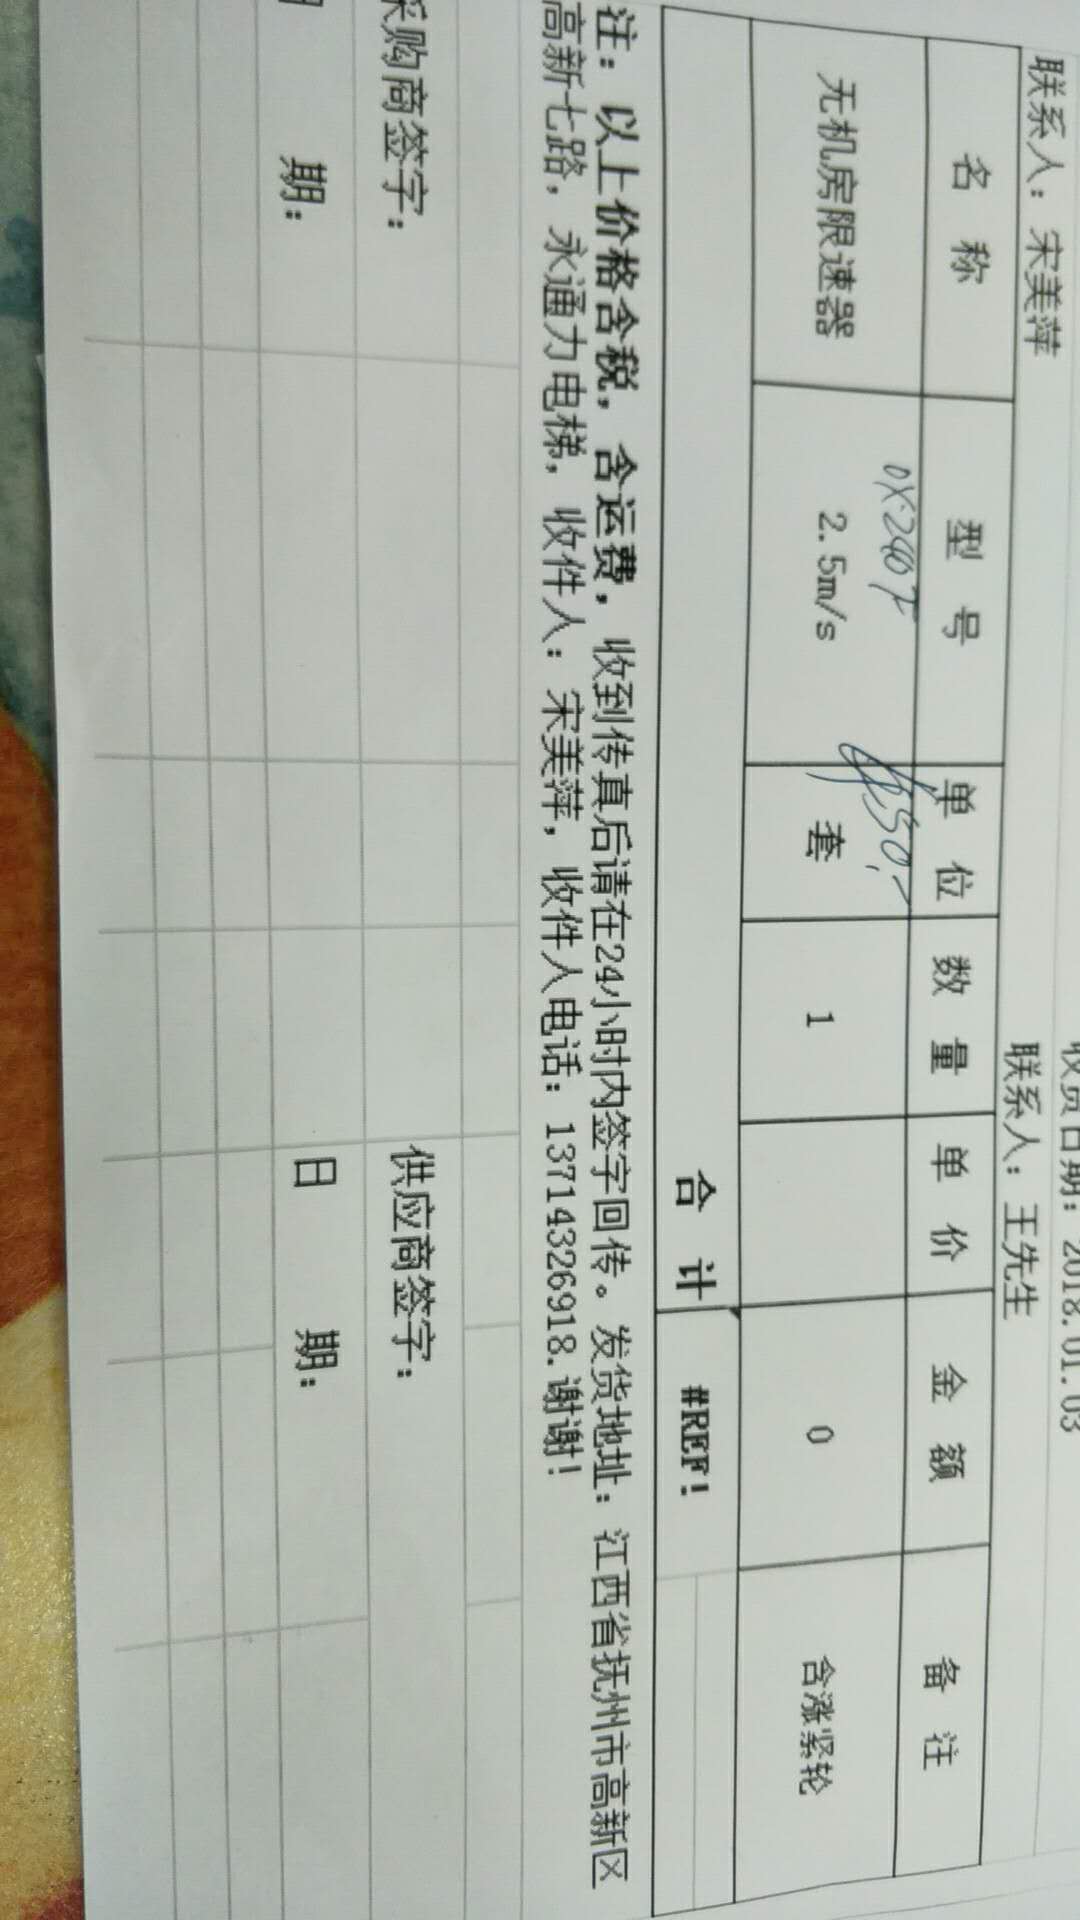 收货日期：2018.01.03
联系人：宋美萍 联系人：王先生
名 称 型 号 单 位 数 量 单 价 金 额 备 注
无机房限速器 2.5m/s 套 1 0 含涨紧轮
合 计 #REF!
注：以上价格含税，含运费，收到传真后请在24小时内签字回传。发货地址：江西省抚州市高新区
高新七路，永通力电梯，收件人：宋美萍，收件人电话：13714326918.谢谢！
采购商签字： 供应商签字：
日 期： 日 期：